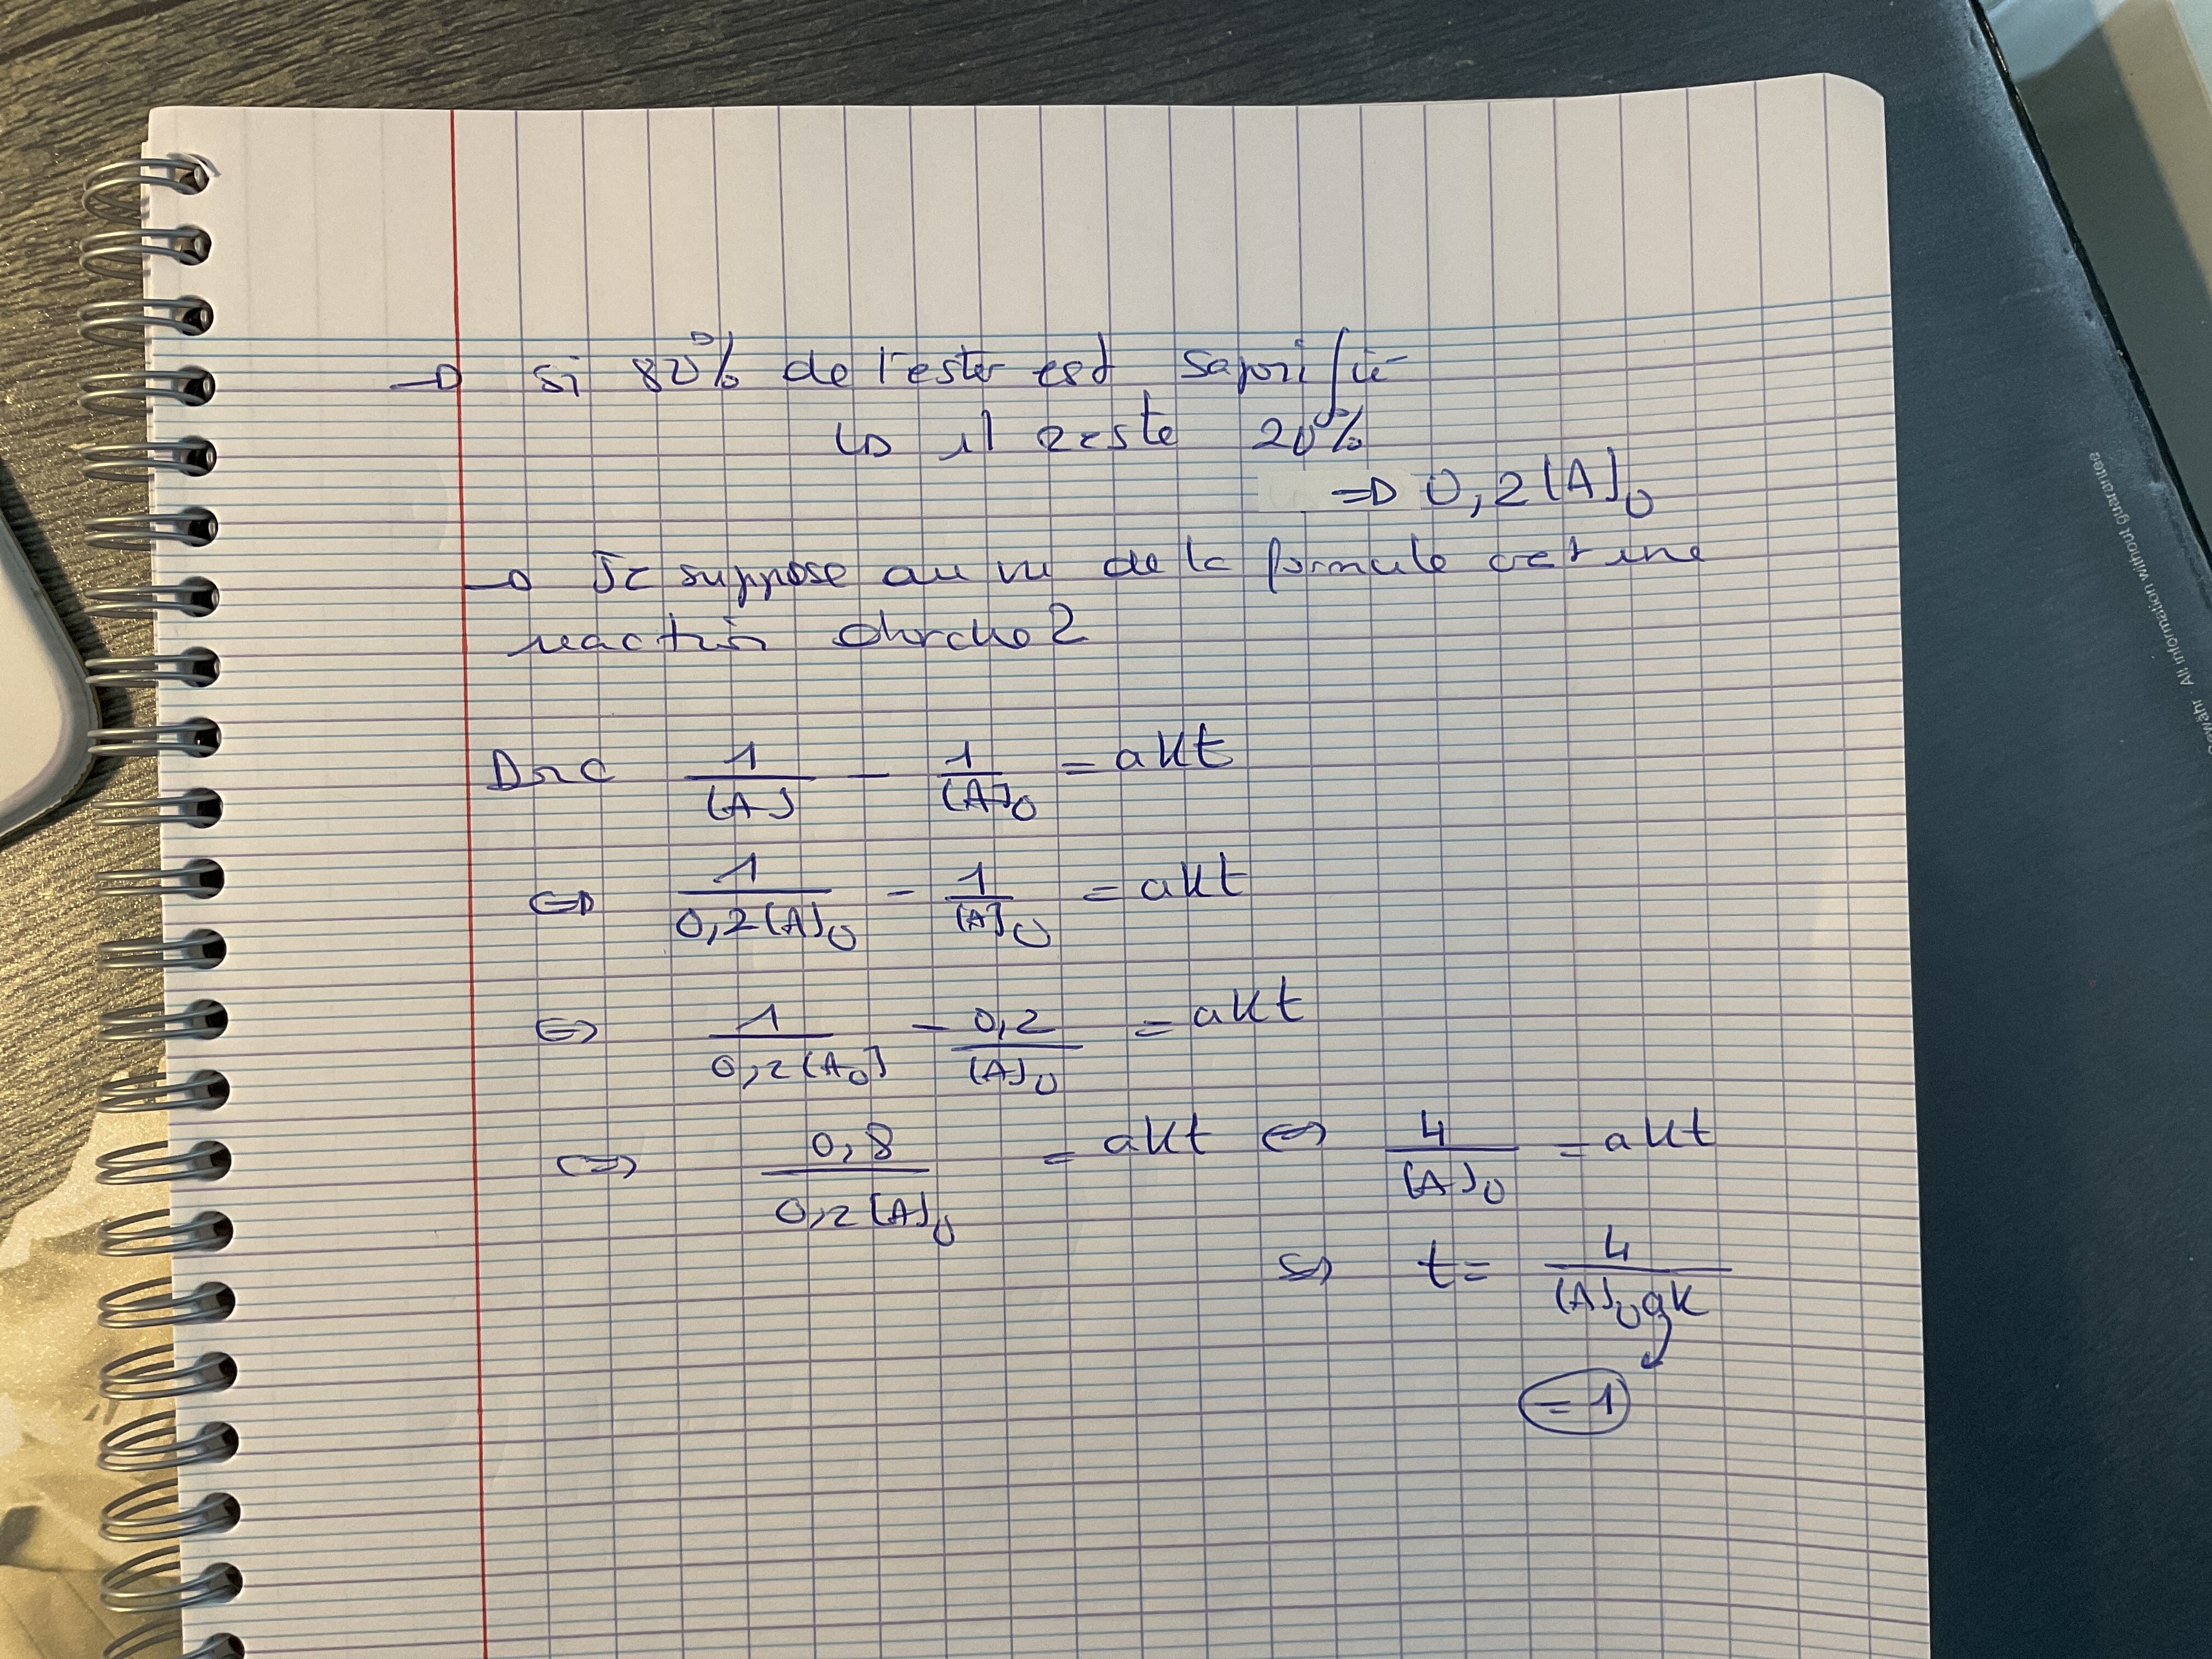 → si 80% de l'ester est saponifié
↳ il reste 20%
⇒ 0,2 [A]₀
→ Je suppose au vu de la formule c'est une
réaction d'ordre 2
Donc 1/[A] - 1/[A]₀ = akt
⇔ 1/0,2[A]₀ - 1/[A]₀ = akt
⇔ 1/0,2[A₀] - 0,2/[A]₀ = akt
⇔ 0,8/0,2[A]₀ = akt ⇔ 4/[A]₀ = akt
⇔ t = 4/[A]₀ak
= 1
All information without guarantee